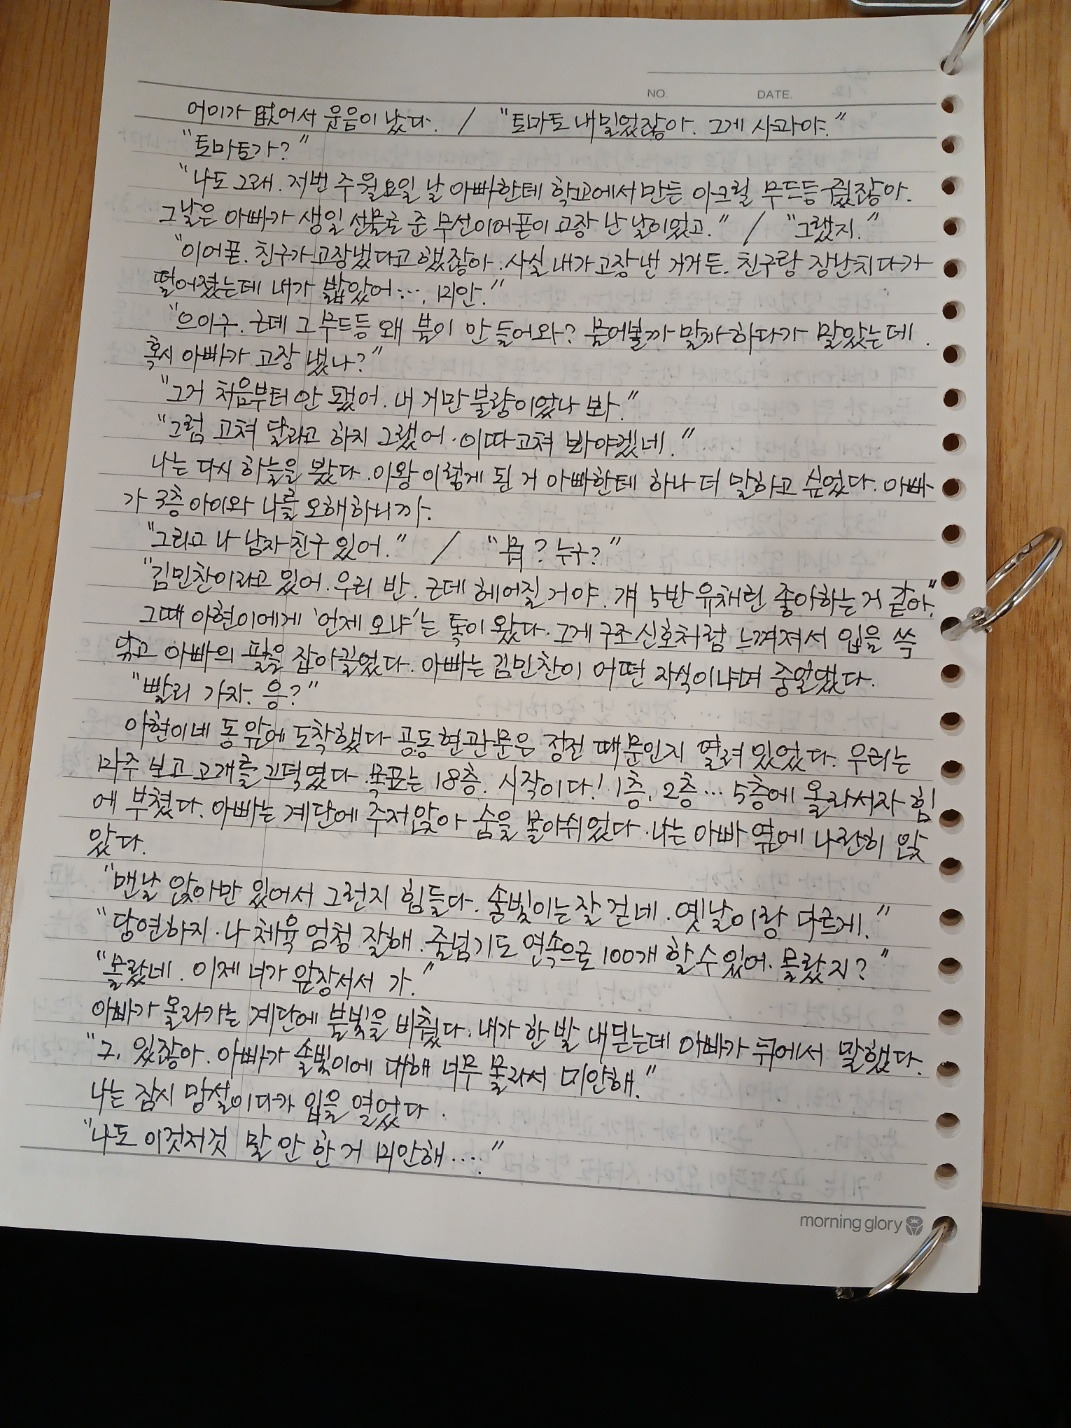 NO. DATE.
어이가 없어서 웃음이 났다. / "토마토 내밀었잖아. 그게 사과야."
"토마토가?"
"나도 그래. 저번 주 월요일 날 아빠한테 학교에서 만든 아크릴 무드등 줬잖아.
그날은 아빠가 생일 선물로 준 무선이어폰이 고장 난 날이었고." / "그랬지."
"이어폰. 친구가 고장냈다고 했잖아. 사실 내가 고장 낸 거거든. 친구랑 장난치다가
떨어졌는데 내가 밟았어…. 미안."
"으이구. 근데 그 무드등 왜 불이 안 들어와? 물어볼까 말까 하다가 말았는데.
혹시 아빠가 고장 냈나?"
"그거 처음부터 안 됐어. 내 거만 불량이었나 봐."
"그럼 고쳐 달라고 하지 그랬어. 이따 고쳐 봐야겠네."
나는 다시 하늘을 봤다. 이왕 이렇게 된 거 아빠한테 하나 더 말하고 싶었다. 아빠
가 3층 아이와 나를 오해하니까.
"그리고 나 남자 친구 있어." / "뭐? 누구?"
"김민찬이라고 있어. 우리 반. 근데 헤어질 거야. 걔 5반 유채린 좋아하는 거 같아."
그때 아현이에게 '언제 오냐'는 톡이 왔다. 그게 구조 신호처럼 느껴져서 입을 쓱
닦고 아빠의 팔을 잡아끌었다. 아빠는 김민찬이 어떤 자식이냐며 중얼댔다.
"빨리 가자. 응?"
아현이네 동 앞에 도착했다. 공동 현관문은 정전 때문인지 열려 있었다. 우리는
마주 보고 고개를 끄덕였다. 목표는 18층. 시작이다! 1층, 2층… 5층에 올라서자 힘
에 부쳤다. 아빠는 계단에 주저앉아 숨을 몰아쉬었다. 나는 아빠 옆에 나란히 앉
았다.
"맨날 앉아만 있어서 그런지 힘들다. 솔빛이는 잘 걷네. 옛날이랑 다르게."
"당연하지. 나 체육 엄청 잘해. 줄넘기도 연속으로 100개 할 수 있어. 몰랐지?"
"몰랐네. 이제 너가 앞장서서 가."
아빠가 올라가는 계단에 불빛을 비췄다. 내가 한 발 내딛는데 아빠가 뒤에서 말했다.
"그, 있잖아. 아빠가 솔빛이에 대해 너무 몰라서 미안해."
나는 잠시 망설이다가 입을 열었다.
"나도 이것저것 말 안 한 거 미안해…."
morning glory